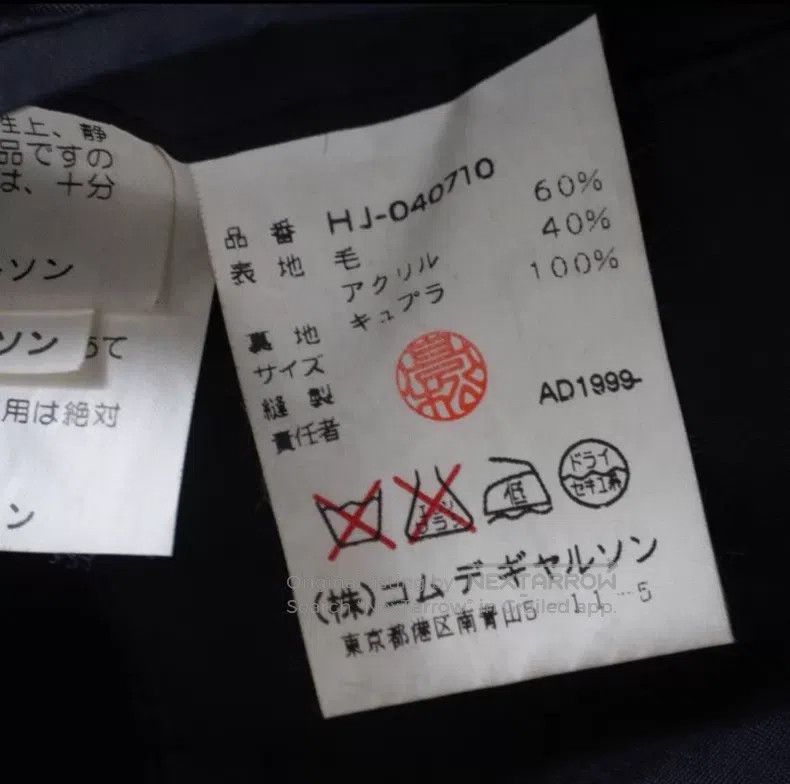 性上、静
品ですの
は、十分
ルソン
ソン
って
用は絶対
ン
品番 HJ-040710
表地 毛 60%
アクリル 40%
裏地 キュプラ 100%
サイズ
縫製
責任者
AD1999-
エンソ
ドライ
セキユ系
低
(株)コム デ ギャルソン
東京都港区南青山5-11-5
Original listing by NEXTARROW
Search "Nextarrow" in Grailed app.